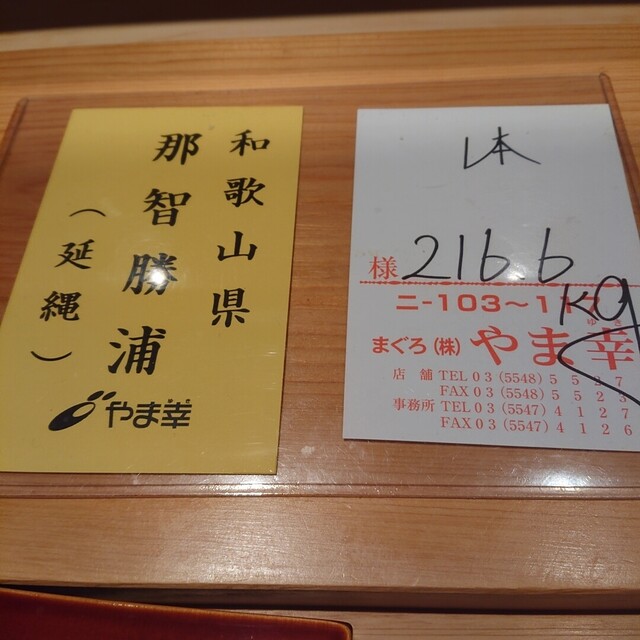 和歌山県
那智勝浦
（延縄）
やま幸
様 216.6
Kg
ニ-103～11
まぐろ(株) やま幸
ゆき
店舗 TEL 03 (5548) 5527
FAX 03 (5548) 5523
事務所 TEL 03 (5547) 4127
FAX 03 (5547) 4126